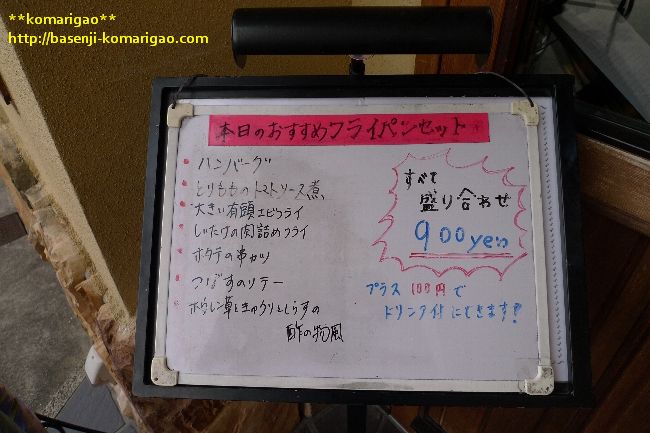 **komarigao**
http://basenji-komarigao.com
本日のおすすめフライパンセット
・ハンバーグ
・とりもものトマトソース煮
・大きい有頭エビフライ
・しいたけの肉詰めフライ
・ホタテの串カツ
・つばすのソテー
・ホウレン草ときゅうりとしらすの
酢の物風
すべて
盛り合わせ
900yen
プラス100円で
ドリンク付にできます!